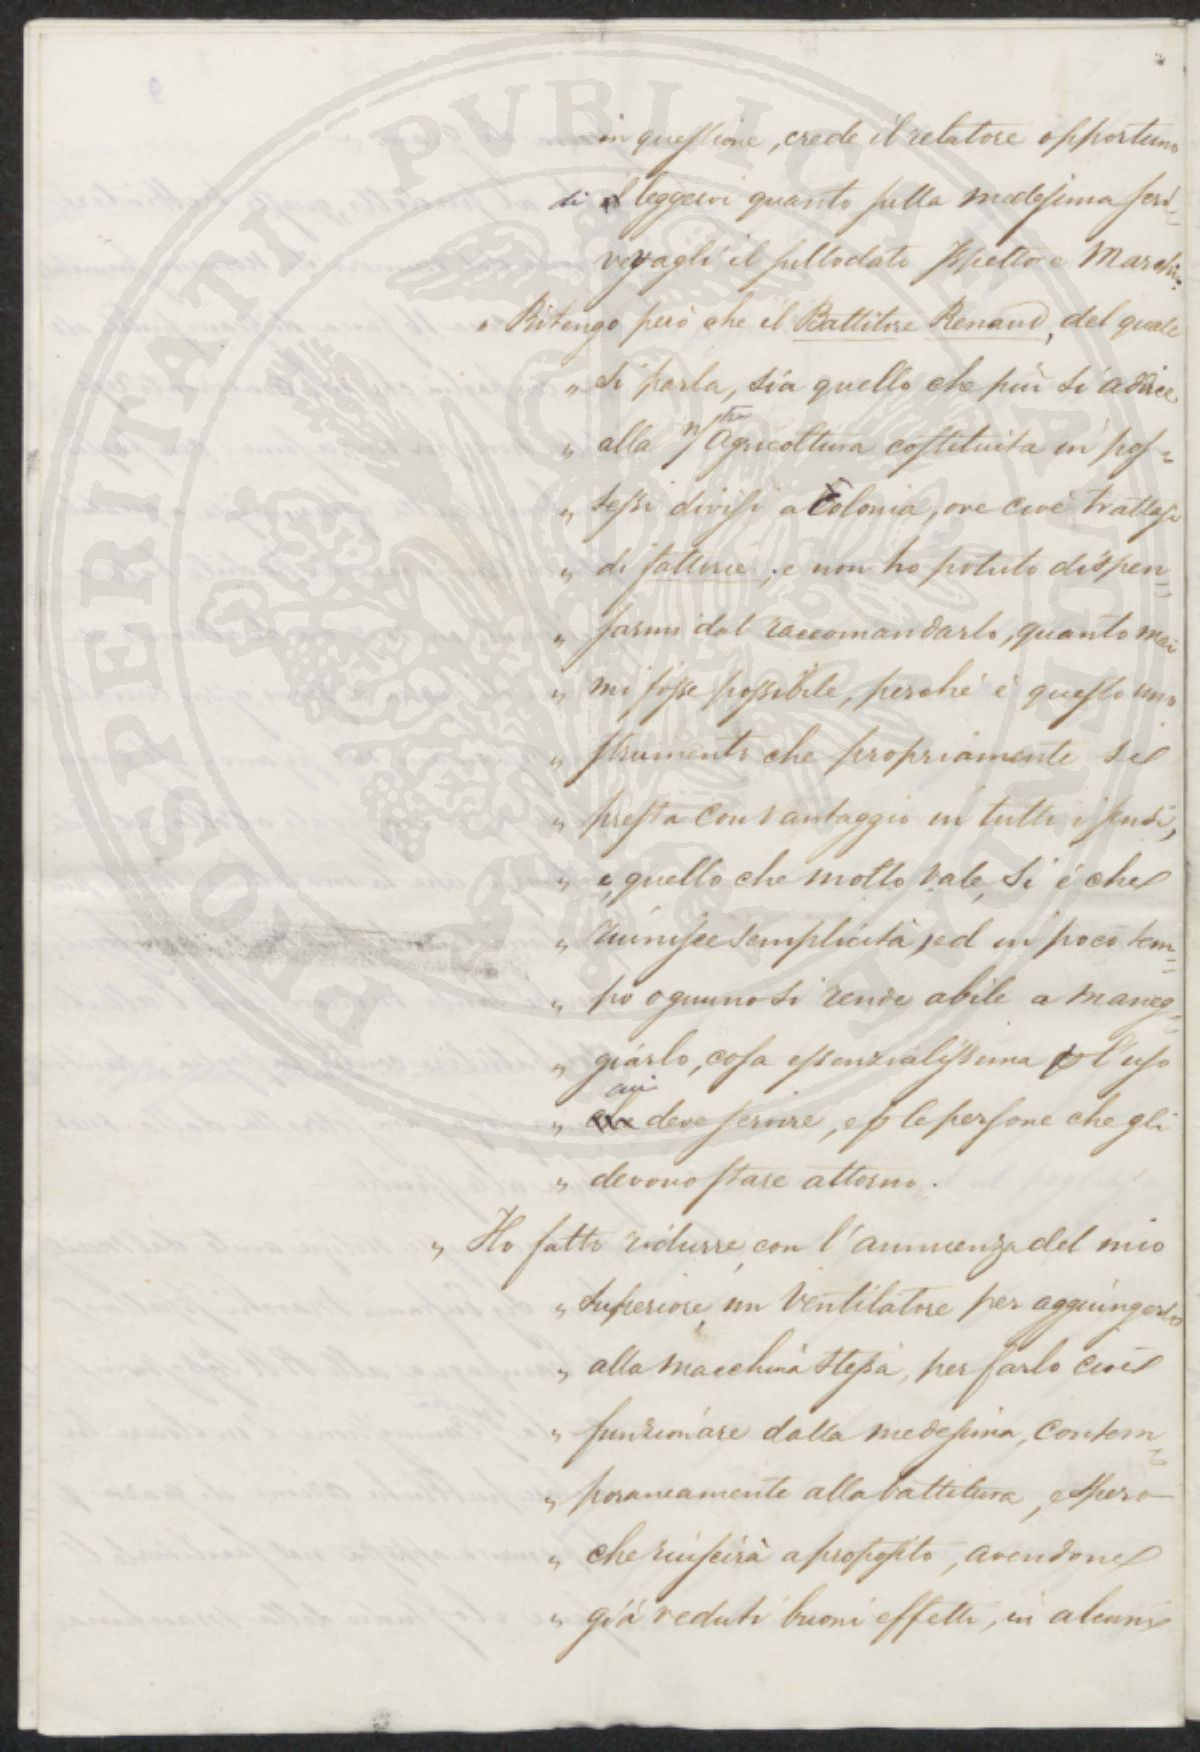 PROSPERITATI PUBLICAE AUGENDAE
in questione, crede il relatore opportuno
di leggervi quanto sulla medesima scri=
vevagli il sullodato Ispettore Marchi.
„ Ritengo però che il Battitore Renaud, del quale
„ si parla, sia quello che più si addice
„ alla n/tra Agricoltura costituita in pos=
„ sessi divisi a Colonia, ove cioè trattasi
„ di fattorie, e non ho potuto dispen=
„ sarmi dal raccomandarlo, quanto mai
„ mi fosse possibile, perché è questo uno
„ strumento che propriamente si
„ presta con vantaggio in tutti i sensi,
„ e, quello che molto vale, si è che
„ riunisce semplicità, ed in poco tem=
„ po ognuno si rende abile a maneg=
„ giarlo, cosa essenzialissima p l'uso
„ cui deve servire, e p le persone che gli
„ devono stare attorno.
„ Ho fatto ridurre, con l'annuenza del mio
„ superiore, un Ventilatore per aggiungerlo
„ alla macchina stessa, per farlo cioè
„ funzionare dalla medesima, contem=
„ poraneamente alla battitura, e spero
„ che riuscirà a proposito, avendone
„ già veduti buoni effetti, in alcuni